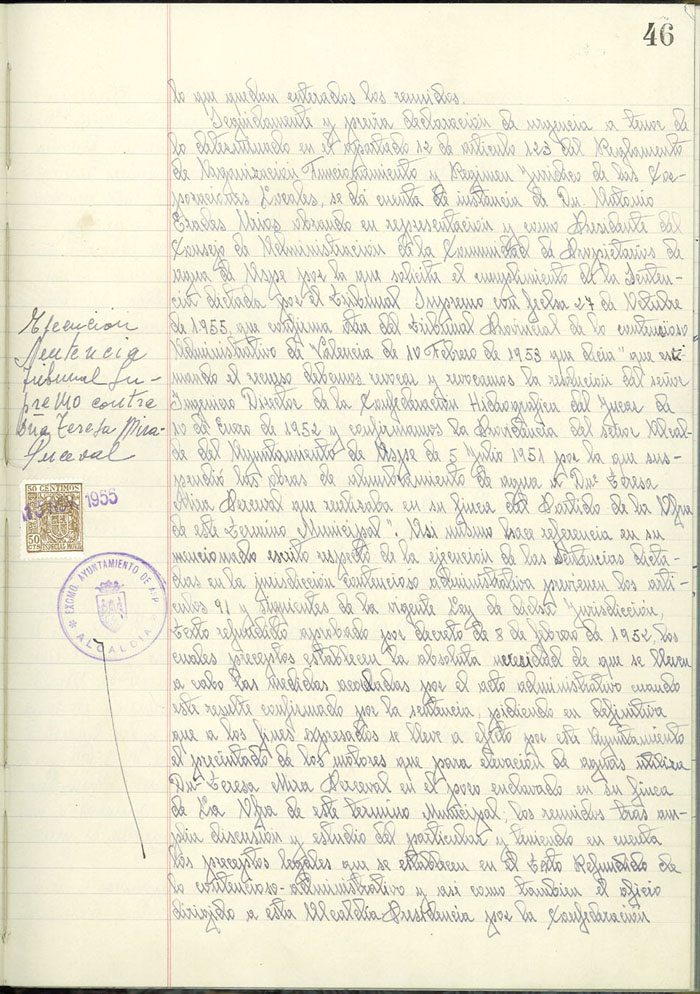 46
lo que quedan enterados los reunidos.
Seguidamente y previa declaración de urgencia a tenor de
lo determinado en el apartado 12 de articulo 123 del Reglamento
de Organización Funcionamiento y Regimen Juridico de las Cor-
poraciones Locales, se dá cuenta de instancia de Dn. Antonio
Erades Mira obrando en representación y como Presidente del
Consejo de Administración de la Comunidad de Propietarios de
agua de Aspe por la que solicita el cumplimiento de la Senten-
cia dictada por el Tribunal Supremo con fecha 27 de Octubre
de 1955, que confirma otra del Tribunal Provincial de lo contencioso
Administrativo de Valencia de 10 Febrero de 1953 que dicia "que esti-
mando el recurso debemos revocar y revocamos la resolucion del señor
Ingeniero Director de la Confederación Hidrografica del Jucar de
10 de Enero de 1952 y confirmamos la Providencia del señor Alcal-
de del Ayuntamiento de Aspe de 5 Julio 1951 por la que sus-
pendió las obras de alumbramiento de agua a Dnª Teresa
Mira Perceval que realizaba en su finca del Partido de la Ofra
de este Termino Municipal". Asi mismo hace referencia en su
mencionado escrito respecto de la ejecucion de las Sentencias dicta-
das en la jurisdicción contencioso administrativa previenen los arti-
culos 91 y siguientes de la vigente Ley de dicha Jurisdicción,
Texto refundido aprobado por decreto de 8 de febrero de 1952, los
cuales preceptos establecen la absoluta necesidad de que se lleven
a cabo las medidas acordadas por el acto administrativo cuando
este resulte confirmado por la sentencia, pidiendo en definitiva
que a los fines expresados se lleve a efecto por este Ayuntamiento
el precintado de los motores que para elevacion de aguas utiliza
Dnª Teresa Mira Perceval en el pozo enclavado en su finca
de La Ofra de este termino Municipal, los reunidos tras am-
plia discusion y estudio del particular y teniendo en cuenta
los preceptos legales que se establecen en el Texto Refundido de
lo contencioso-administrativo y asi como tambien el oficio
dirigido a esta Alcaldia Presidencia por la Confederación
Ejecución
Sentencia
tribunal Su-
premo contra
Dña Teresa Mira-
Perceval
50 CENTIMOS
1955
50
CTS ESPECIAL MOVIL
EXCMO. AYUNTAMIENTO DE
ALCALDIA